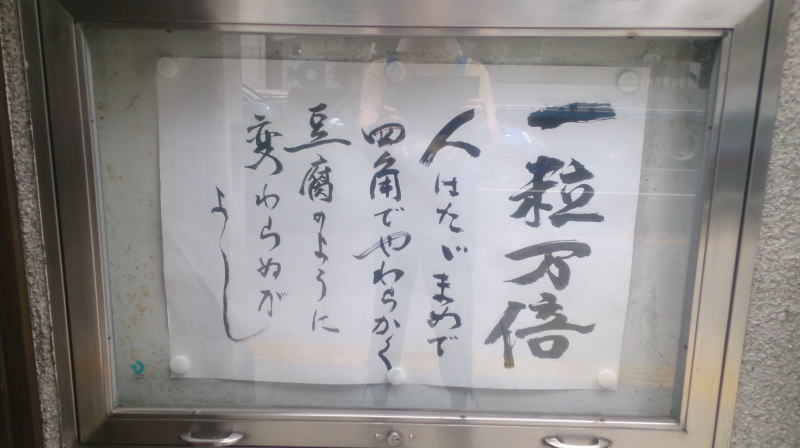 一粒万倍
人はたゞまめで
四角でやわらかく
豆腐のように
変わらぬが
よし